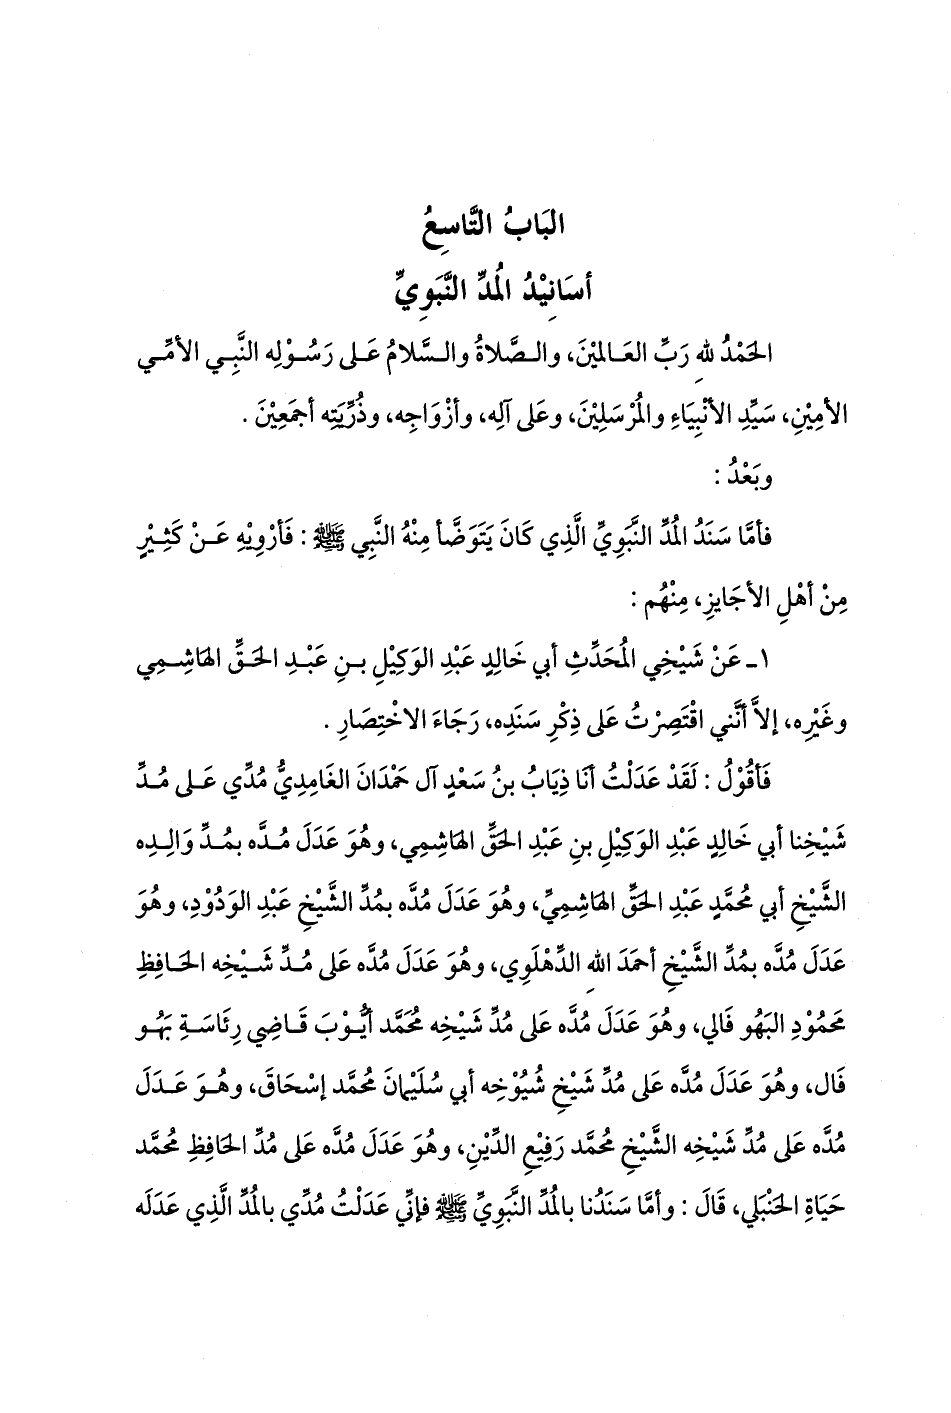 البَابُ التَّاسِعُ
أسَانِيْدُ المُدِّ النَّبَوِيِّ
الحَمْدُ للهِ رَبِّ العَالمِيْنَ، والصَّلاةُ والسَّلامُ عَلى رَسُوْلِه النَّبِي الأمِّي
الأمِيْنِ، سَيِّدِ الأنْبِيَاءِ والمُرْسَلِيْنَ، وعَلى آلِه، وأزْوَاجِه، وذُرِّيَتِه أجمَعِيْنَ .
وبَعْدُ :
فأمَّا سَنَدُ المُدِّ النَّبَوِيِّ الَّذِي كَانَ يَتَوَضَّأ مِنْهُ النَّبِي ﷺ : فَأرْوِيْهِ عَنْ كَثِيْرٍ
مِنْ أهْلِ الأجَايِزِ، مِنْهُم :
١ـ عَنْ شَيْخِي المُحَدِّثِ أبي خَالِدٍ عَبْدِ الوَكِيْلِ بنِ عَبْدِ الحَقِّ الهَاشِمِي
وغَيْرِه، إلاَّ أنَّني اقْتَصِرْتُ عَلى ذِكْرِ سَنَدِه، رَجَاءَ الاخْتِصَارِ .
فَأقُوْلُ : لَقَدْ عَدَلْتُ أنَا ذِيَابُ بنُ سَعْدٍ آل حَمْدَانَ الغَامِدِيُّ مُدِّي عَلى مُدِّ
شَيْخِنا أبي خَالِدٍ عَبْدِ الوَكِيْلِ بنِ عَبْدِ الحَقِّ الهَاشِمِي، وهُوَ عَدَلَ مُدَّه بمُدِّ وَالِدِه
الشَّيْخِ أبي مُحمَّدٍ عَبْدِ الحَقِّ الهَاشِمِيِّ، وهُوَ عَدَلَ مُدَّه بمُدِّ الشَّيْخِ عَبْدِ الوَدُوْدِ، وهُوَ
عَدَلَ مُدَّه بمُدِّ الشَّيْخِ أحمَدَ اللهِ الدِّهْلَوِي، وهُوَ عَدَلَ مُدَّه عَلى مُدِّ شَيْخِه الحَافِظِ
محَمُوْدِ البَهُو فَالي، وهُوَ عَدَلَ مُدَّه عَلى مُدِّ شَيْخِه مُحمَّد أيُّوْبَ قَاضِي رِئَاسَةِ بَهُو
فَال، وهُوَ عَدَلَ مُدَّه عَلى مُدِّ شَيْخِ شُيُوْخِه أبي سُلَيْمَانَ مُحمَّد إسْحَاقَ، وهُوَ عَدَلَ
مُدَّه عَلى مُدِّ شَيْخِه الشَّيْخِ مُحمَّد رَفِيْعِ الدِّيْنِ، وهُوَ عَدَلَ مُدَّه عَلى مُدِّ الحَافِظِ مُحمَّد
حَيَاةِ الحَنْبَلي، قَالَ : وأمَّا سَنَدُنا بالمُدِّ النَّبَوِيِّ ﷺ فإنِّي عَدَلْتُ مُدِّي بالمُدِّ الَّذِي عَدَلَه